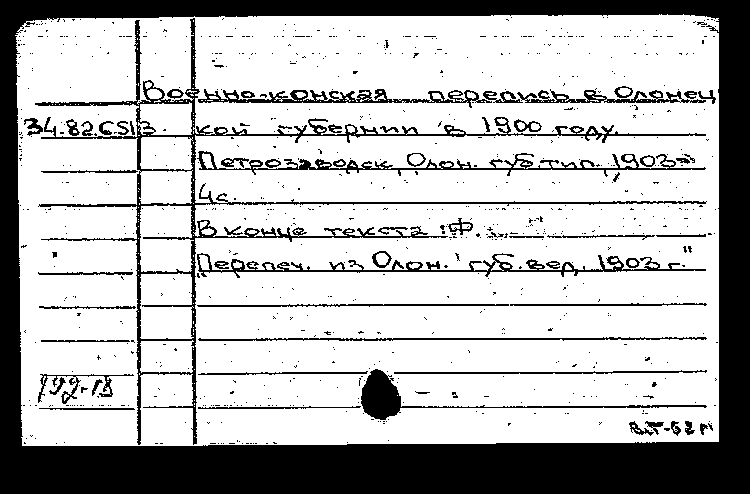 Военно-конская перепись в Олонец
кой губернии в 1900 году.
Петрозаводск, Олон. губ. тип., 1903
4с.
В конце текста: Ф.
"Перепеч. из Олон. губ. вед. 1903 г."